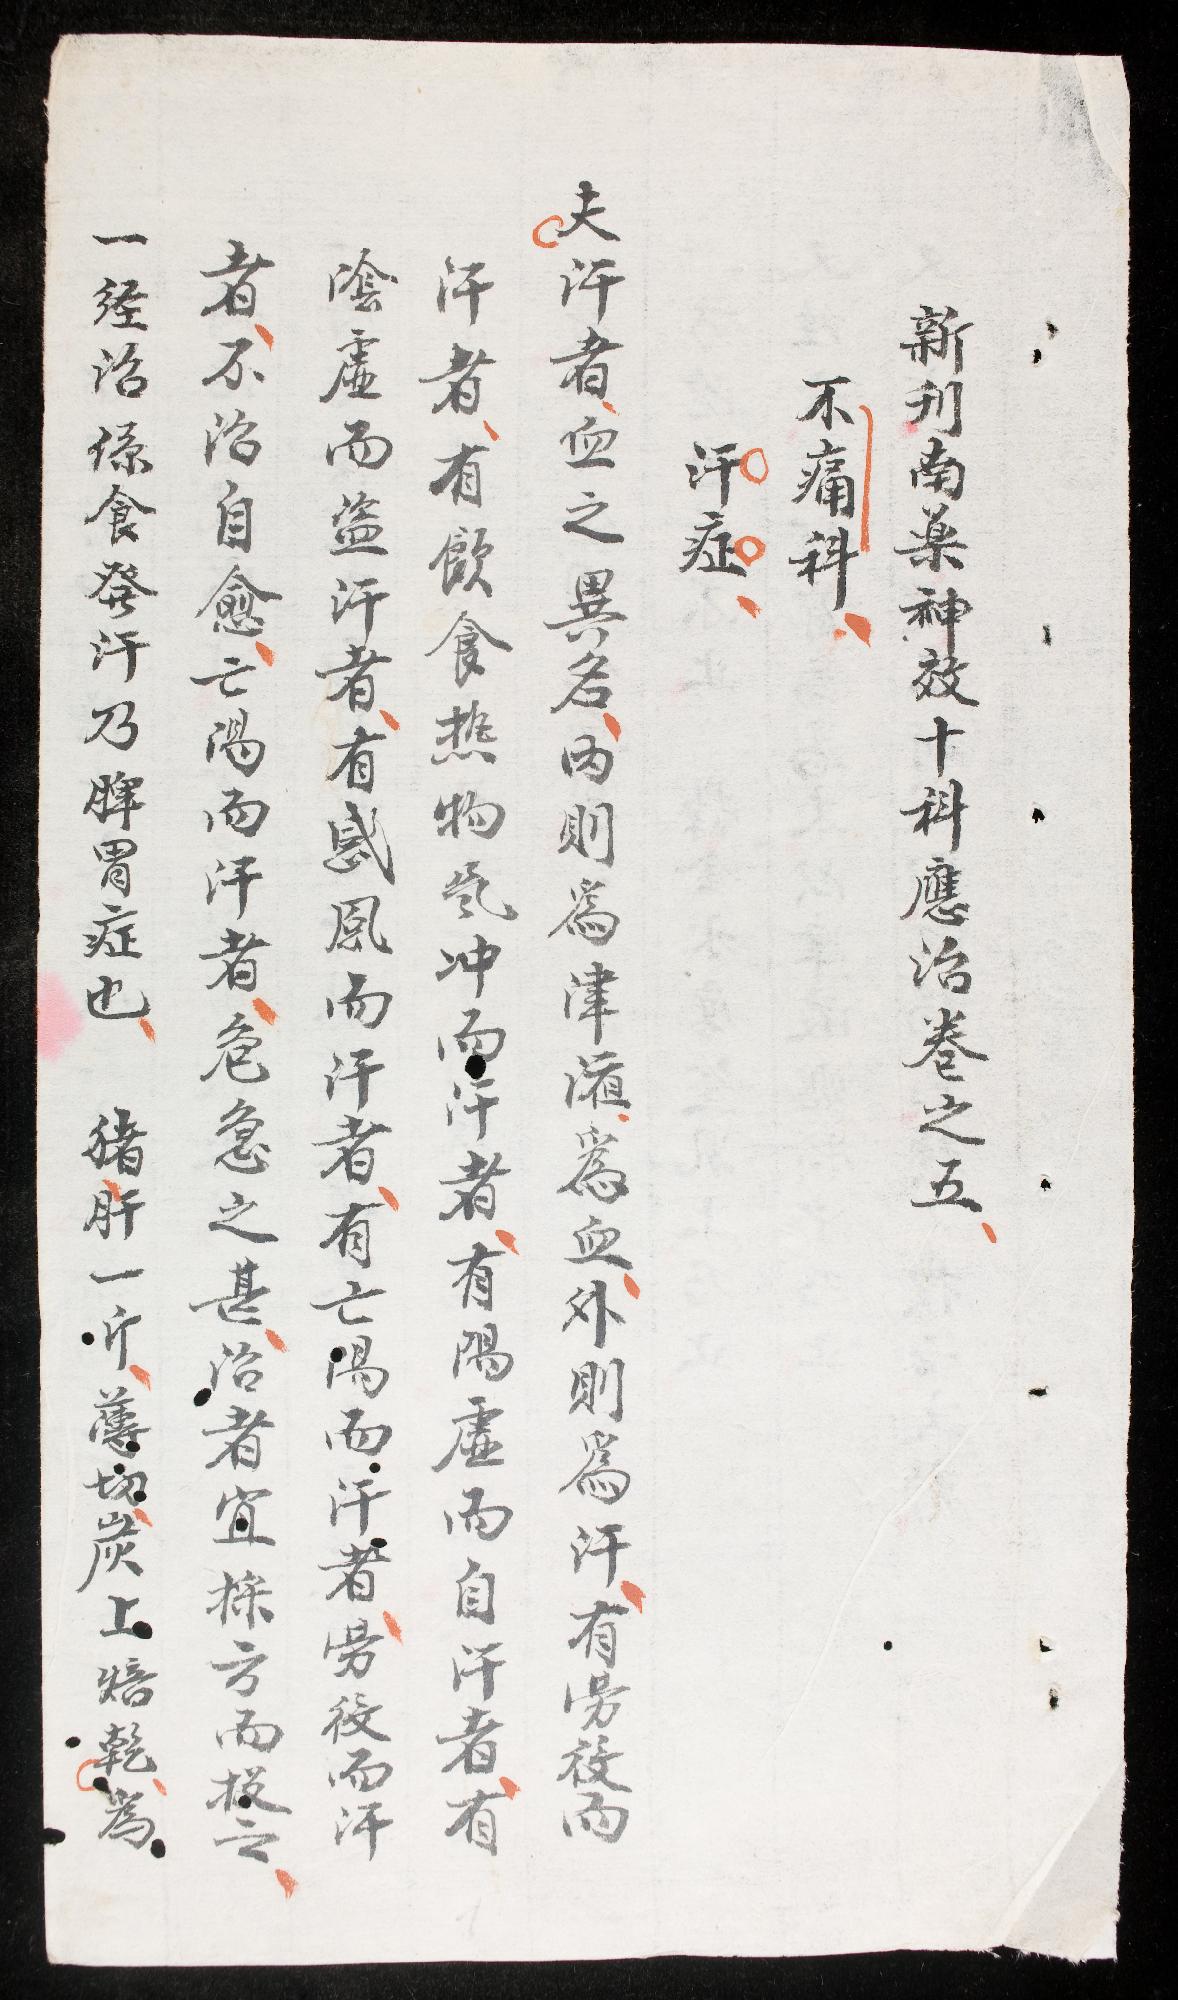 新刊南薬神效十科應治卷之五
不痛科
汗症
夫汗者血之異名内則爲津液爲血外則爲汗有劳役而
汗者有飲食热物気冲而汗者有陽虚而自汗者有
陰虚而盗汗者有感風而汗者有亡陽而汗者劳役而汗
者不治自愈亡陽而汗者危急之甚治者宜採方而投云
一経治係食發汗乃脾胃症也 猪肝一斤薄切炭上焙乾爲